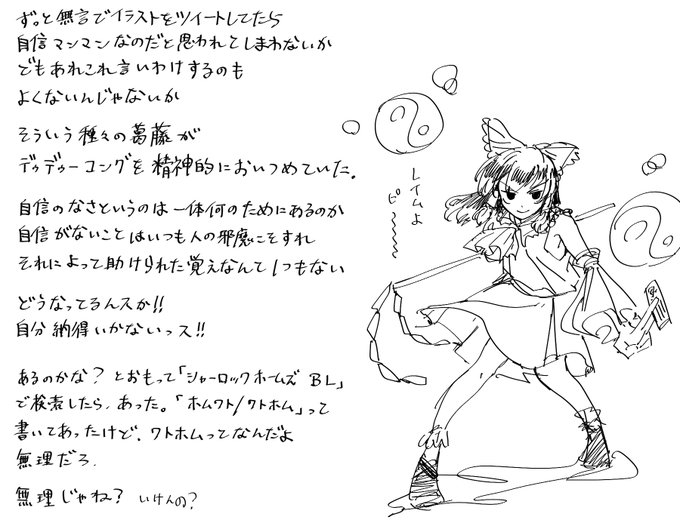 ずっと無言でイラストをツイートしてたら
自信マンマンなのだと思われてしまわないか
でもあれこれ言いわけするのも
よくないんじゃないか
そういう種々の葛藤が
ディディーコングを精神的においつめていた。
自信のなさというのは一体何のためにあるのか
自信がないことはいつも人の邪魔こそすれ
それによって助けられた覚えなんて1つもない
どうなってるんスか!!
自分納得いかないっス!!
あるのかな?とおもって「シャーロックホームズ BL」
で検索したら、あった。「ホムワト/ワトホム」って
書いてあったけど、ワトホムってなんだよ
無理だろ、
無理じゃね? いけんの?
レイムよ
ビ〜〜〜